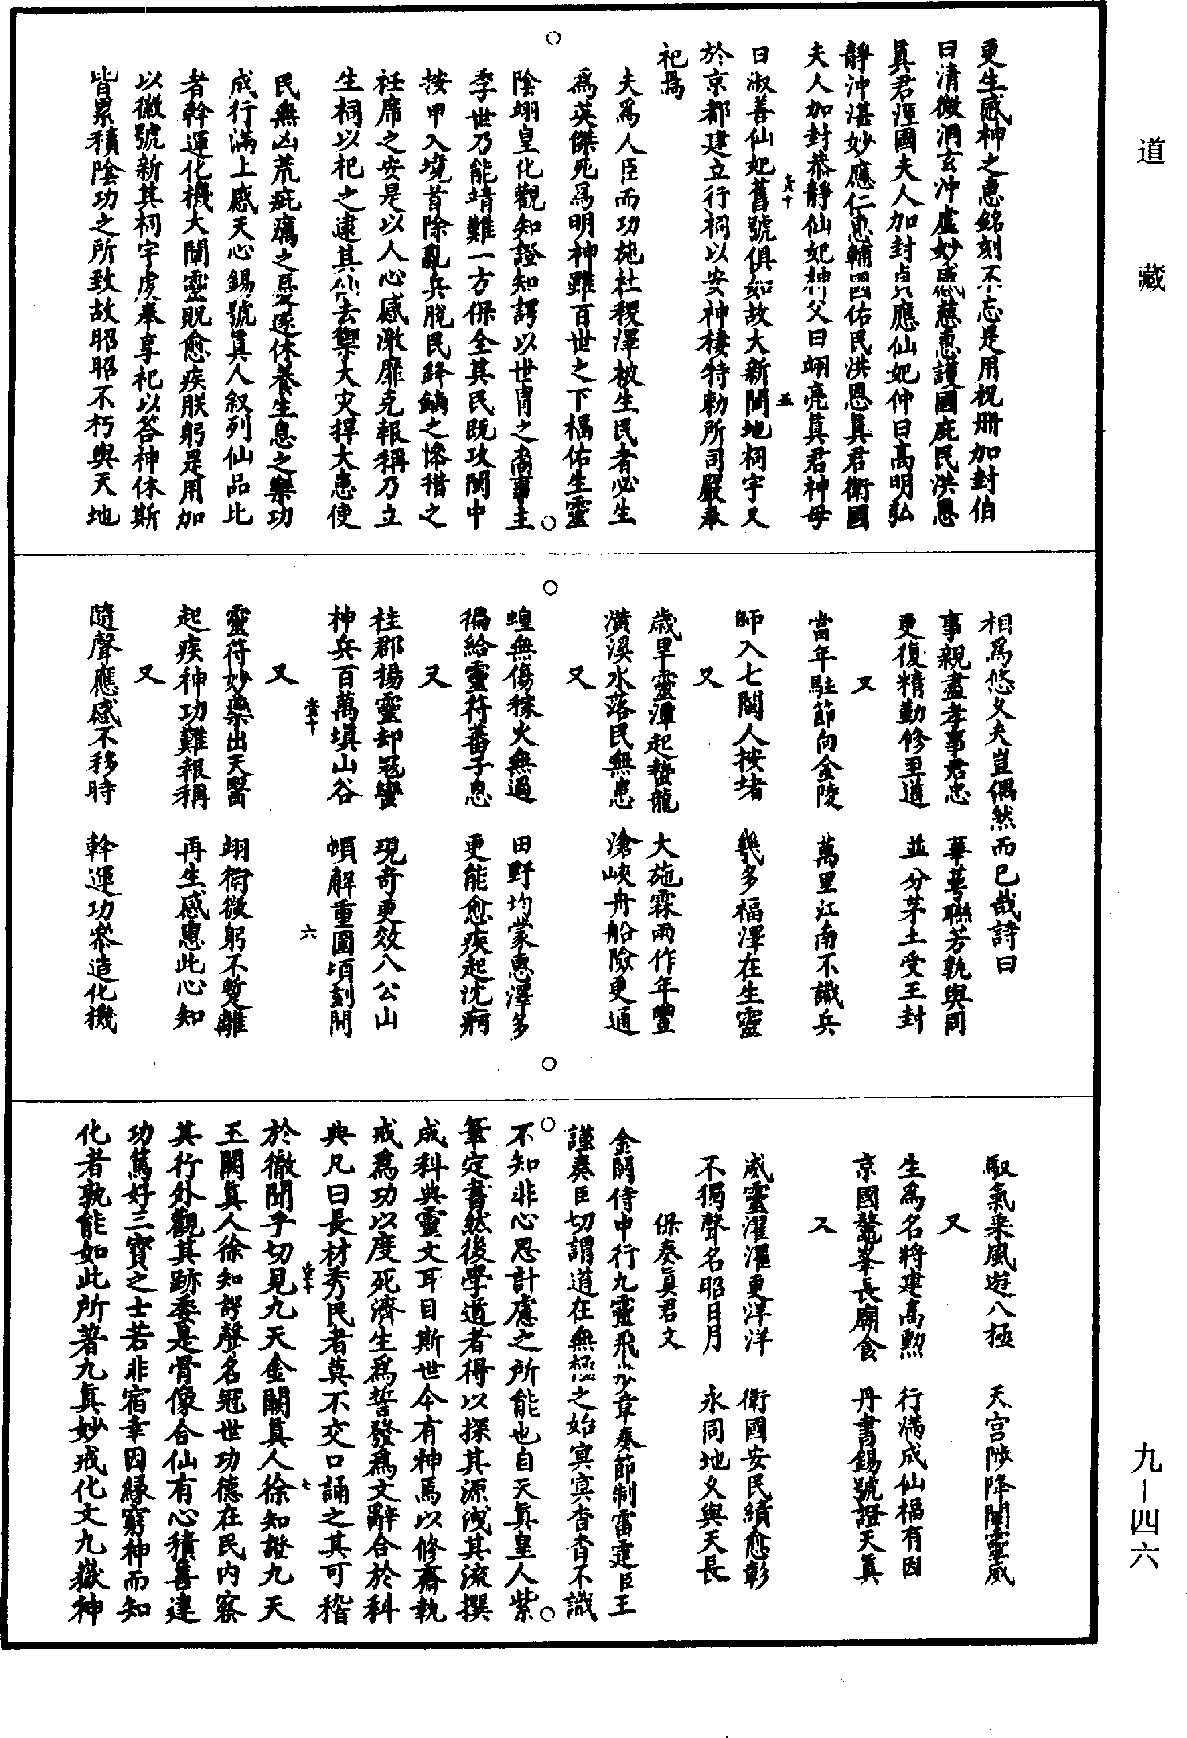 道藏
更生感神之惠銘刻不忘是用祝冊加封伯
曰清微洞玄沖虛妙感慈惠護國庇民洪恩
眞君洭國夫人加封貞應仙妃仲曰高明弘
靜沖湛妙應仁惠輔國佑民洪恩眞君衛國
夫人加封恭靜仙妃神父曰翊亮眞君神母
曰淑善仙妃舊號俱如故大新閩地祠宇又
於京都建立行祠以安神棲特勑所司嚴奉
祀焉
夫爲人臣而功施社稷澤被生民者必生
爲英傑死爲明神雖百世之下福佑生靈
陰翊皇化觀知證知諤以世胄之裔事主
季世乃能靖難一方保全其民旣攻閩中
按甲入境首除亂兵脫民鋒鏑之慘措之
衽席之安是以人心感激靡克報稱乃立
生祠以祀之逮其仙去禦大灾捍大患使
民無凶荒疵癘之憂遂休養生息之樂功
成行滿上感天心錫號眞人叙列仙品比
者幹運化機大闡靈貺愈疾朕躬是用加
以徽號新其祠宇虔奉享祀以答神休斯
皆累積陰功之所致故昭昭不朽與天地
相爲悠久夫豈偶然而已哉詩曰
事親盡孝事君忠 華萼聯芳孰與同
更復精勤修至道 並分茅土受王封
又
當年駐節向金陵 萬里江南不識兵
師入七閩人按堵 幾多福澤在生靈
又
歲旱靈潭起蟄龍 大施霖雨作年豐
濆溪水落民無患 滄峽舟船險更通
又
蝗無傷稼火無過 田野均蒙惠澤多
徧給靈符蕃子息 更能愈疾起沈痾
又
桂郡揚靈却冦蠻 現奇更效八公山
神兵百萬塡山谷 頓解重圍頃刻間
又
靈符妙藥出天醫 翊衛微躬不蹔離
起疾神功難報稱 再生感惠此心知
又
隨聲應感不移時 幹運功叅造化機
馭氣乗風遊八極 天宮陟降閘靈威
又
生爲名將建高勲 行滿成仙福有因
京國鼇峯長廟食 丹書錫號證天眞
又
威靈濯濯更洋洋 衛國安民績愈彰
不獨聲名昭日月 永同地久與天長
保奏眞君文
金闕侍中行九靈飛步章奏節制雷霆臣王
謹奏臣切謂道在無極之始㝠㝠杳杳不識
不知非心思計慮之所能也自天眞皇人紫
筆定書然後學道者得以探其源洩其流撰
成科典靈文耳目斯世今有神焉以修齋執
戒爲功以度死濟生爲誓發爲文辭合於科
典凡曰長材秀民者莫不交口誦之其可稽
於徹聞乎切見九天金闕眞人徐知證九天
玉闕眞人徐知諤聲名冠世功德在民內察
其行外觀其跡委是骨像合仙有心積善建
功篤好三寶之士若非宿幸因緣窮神而知
化者孰能如此所著九眞妙戒化文九嶽神
九—四六